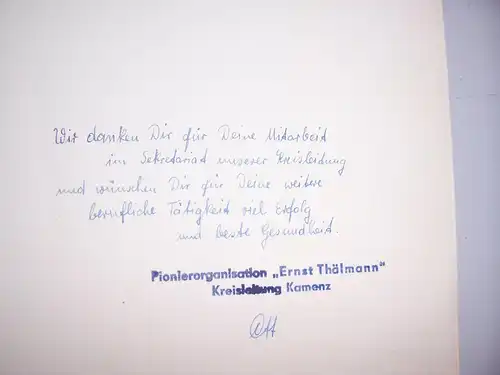 Wir danken Dir für Deine Mitarbeit
im Sekretariat unserer Kreisleitung
und wünschen Dir für Deine weitere
berufliche Tätigkeit viel Erfolg
und beste Gesundheit.
Pionierorganisation „Ernst Thälmann"
Kreisleitung Kamenz